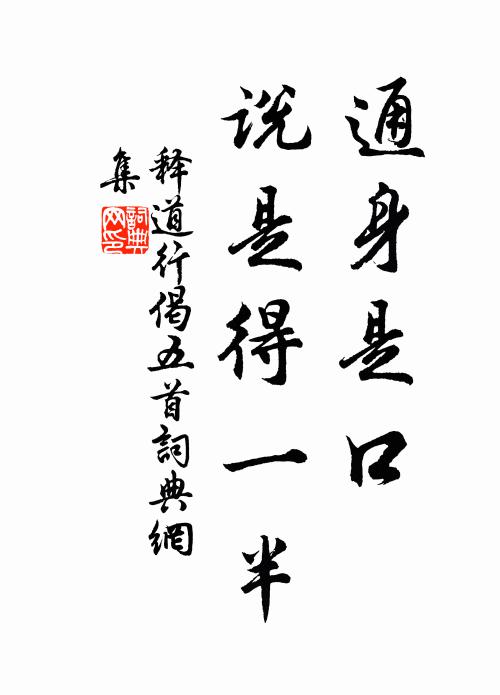 通身是口
说是得一半
释道行偈五首詞典網
集
詞典网印